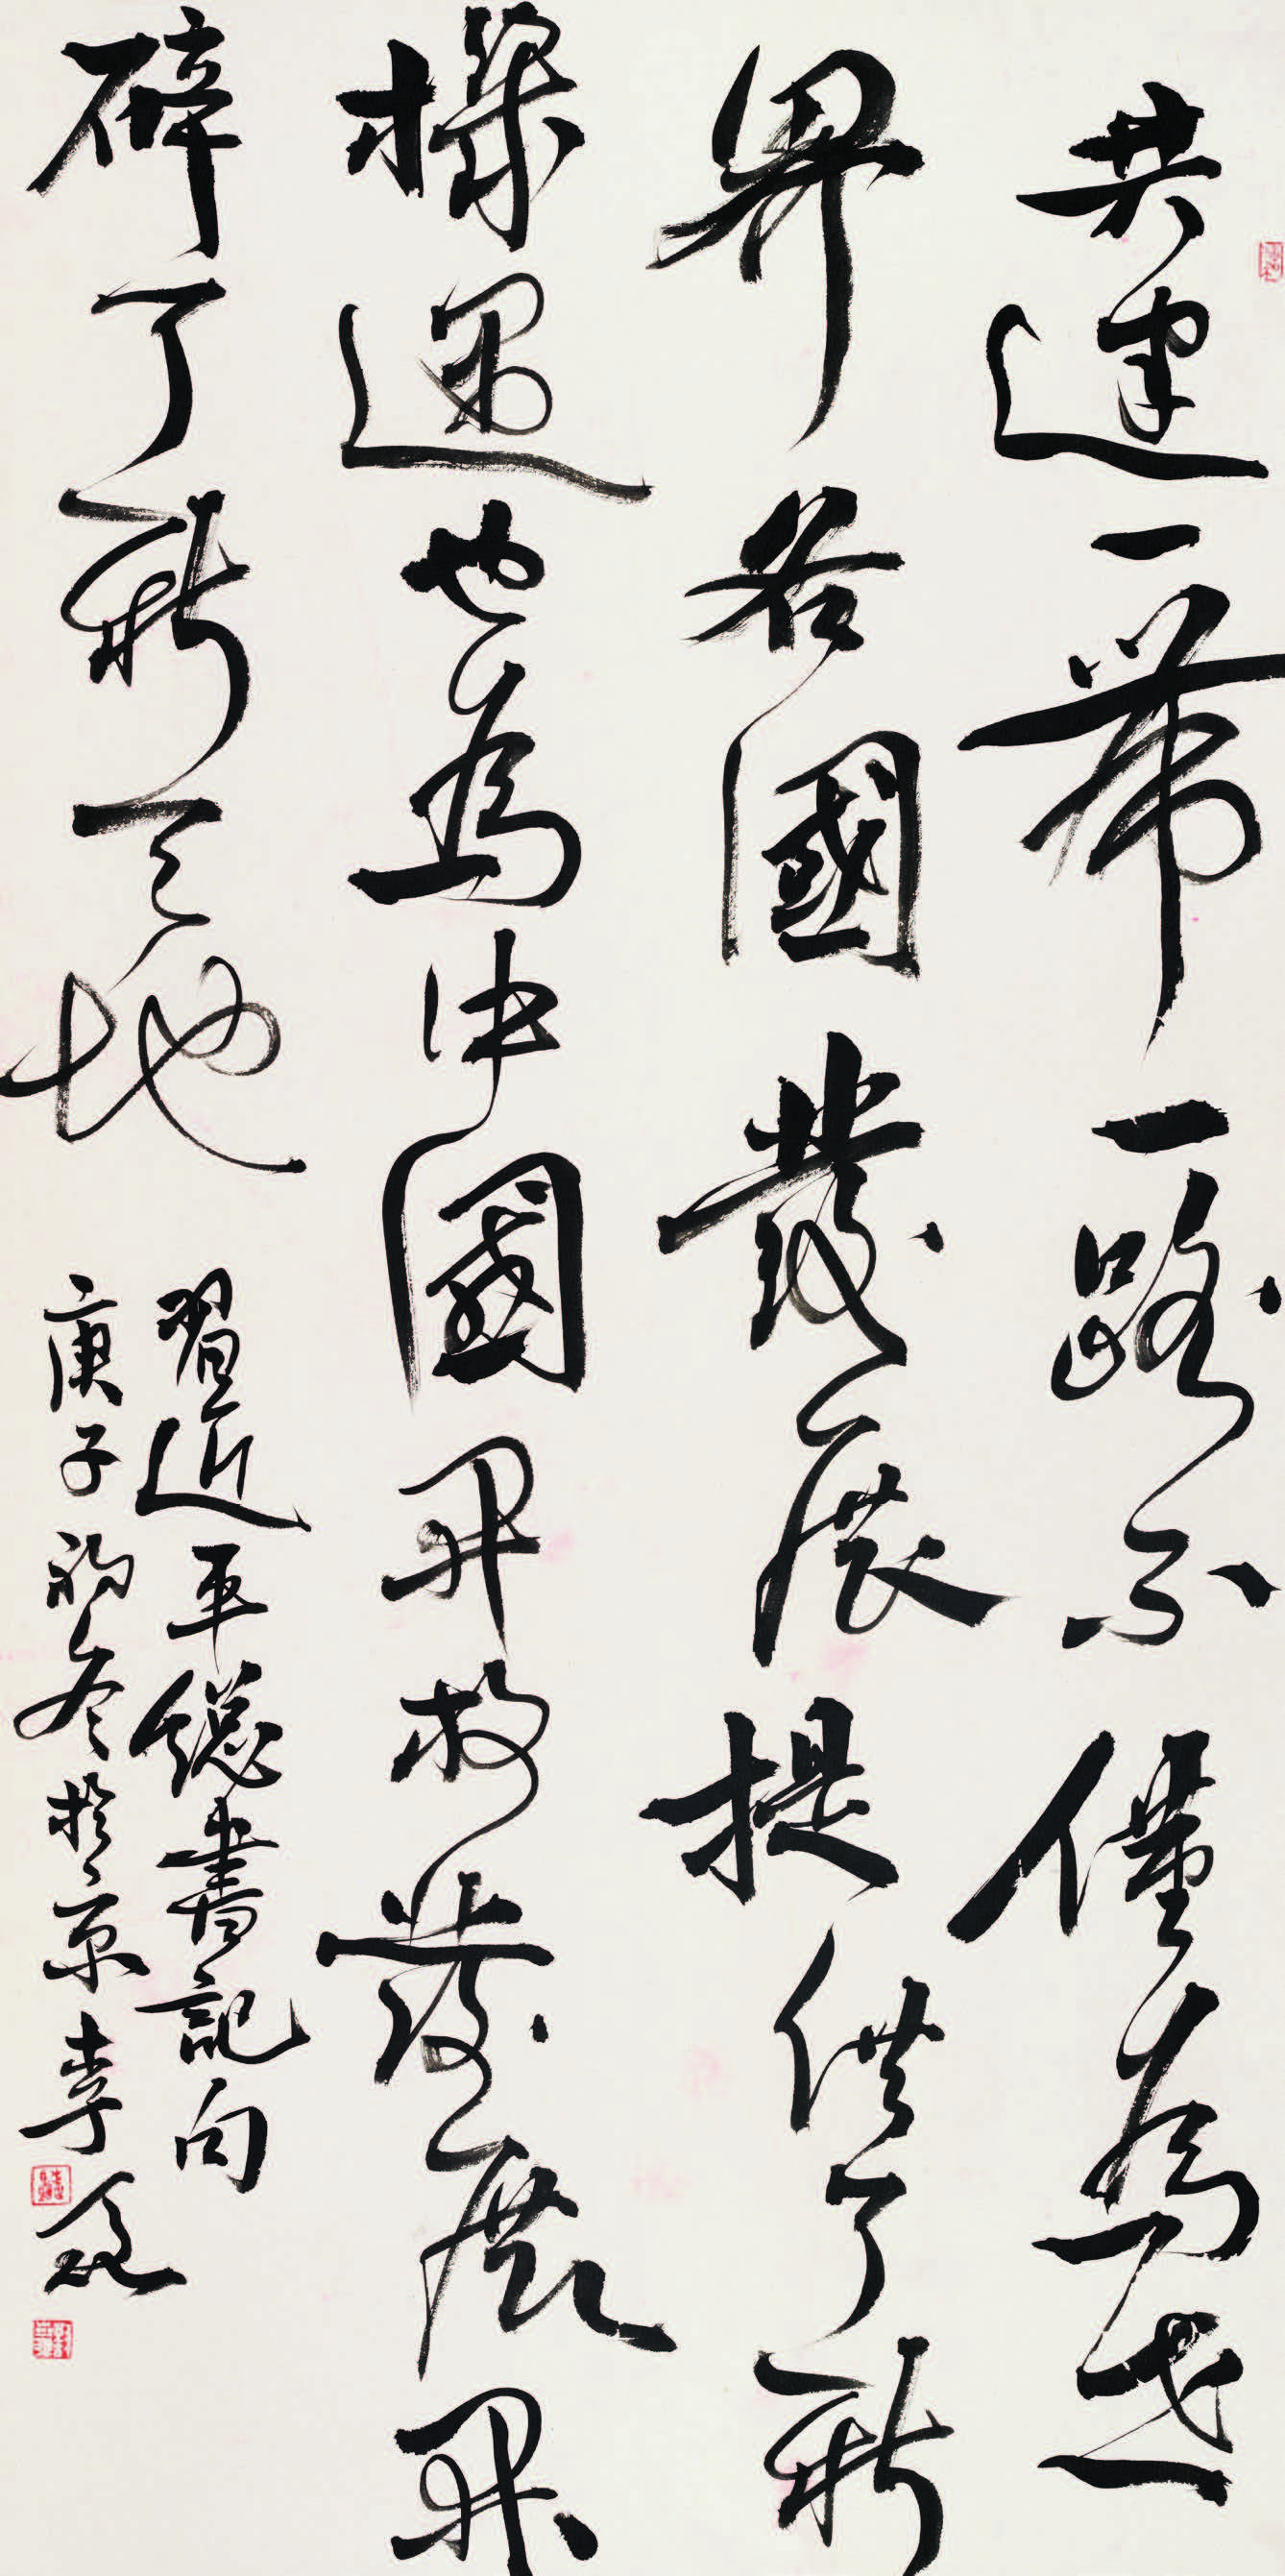 共建一带一路不僅為世
界各國發展提供了新
機遇也為中國開放發展開
辟了新天地
習近平總書記句
庚子初冬於京李